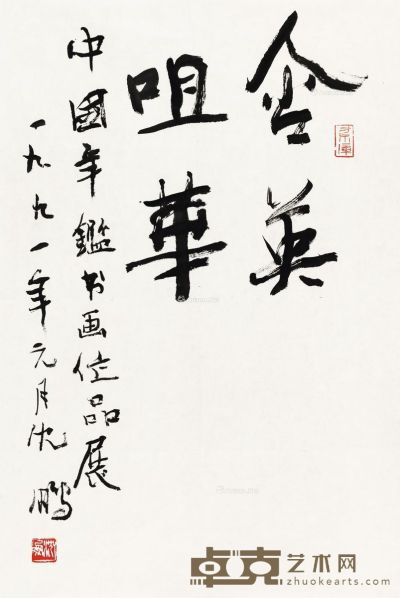 含英
咀華
中國年鑑书画佳品展
一九九一年元月沈鹏
卓克艺术网
zhuokearts.com